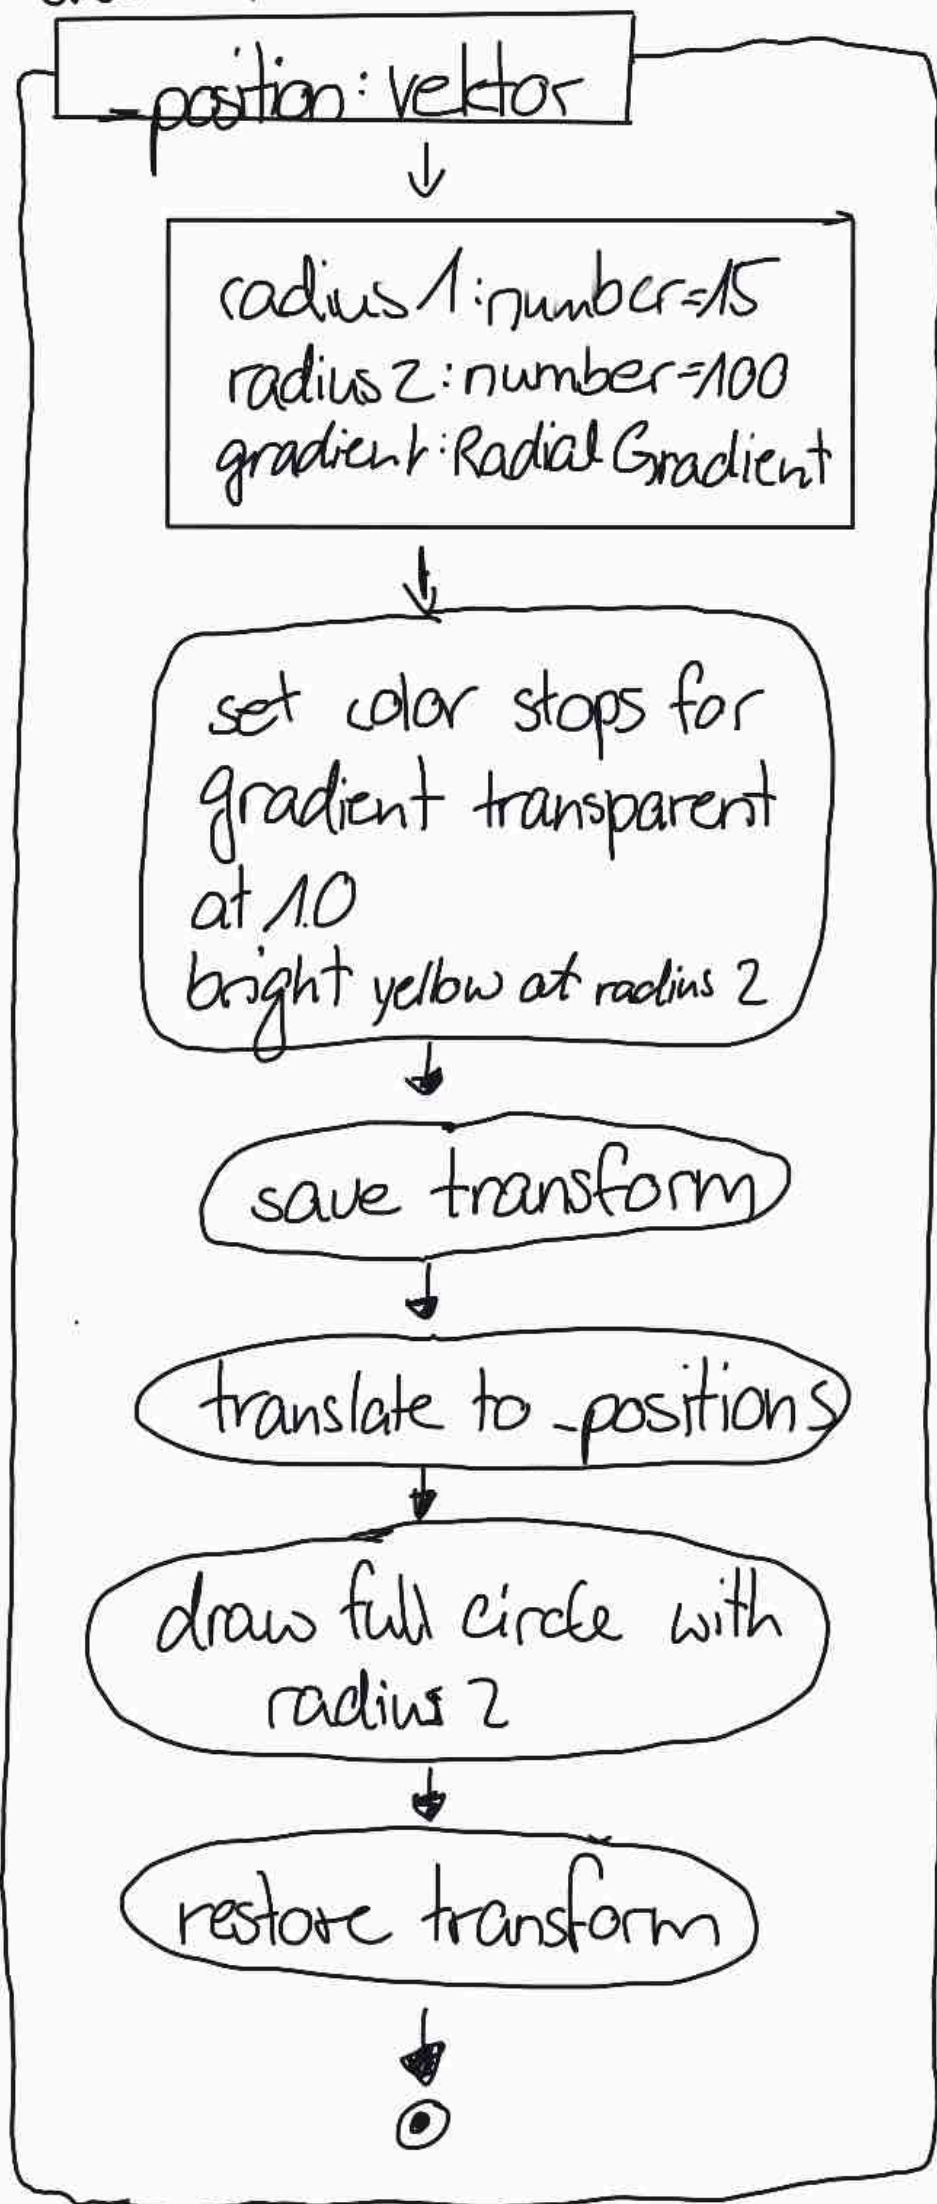 _position: Vektor
radius 1: number=15
radius 2: number=100
gradient: Radial Gradient
set color stops for
gradient transparent
at 1.0
bright yellow at radius 2
save transform
translate to _positions
draw full circle with
radius 2
restore transform